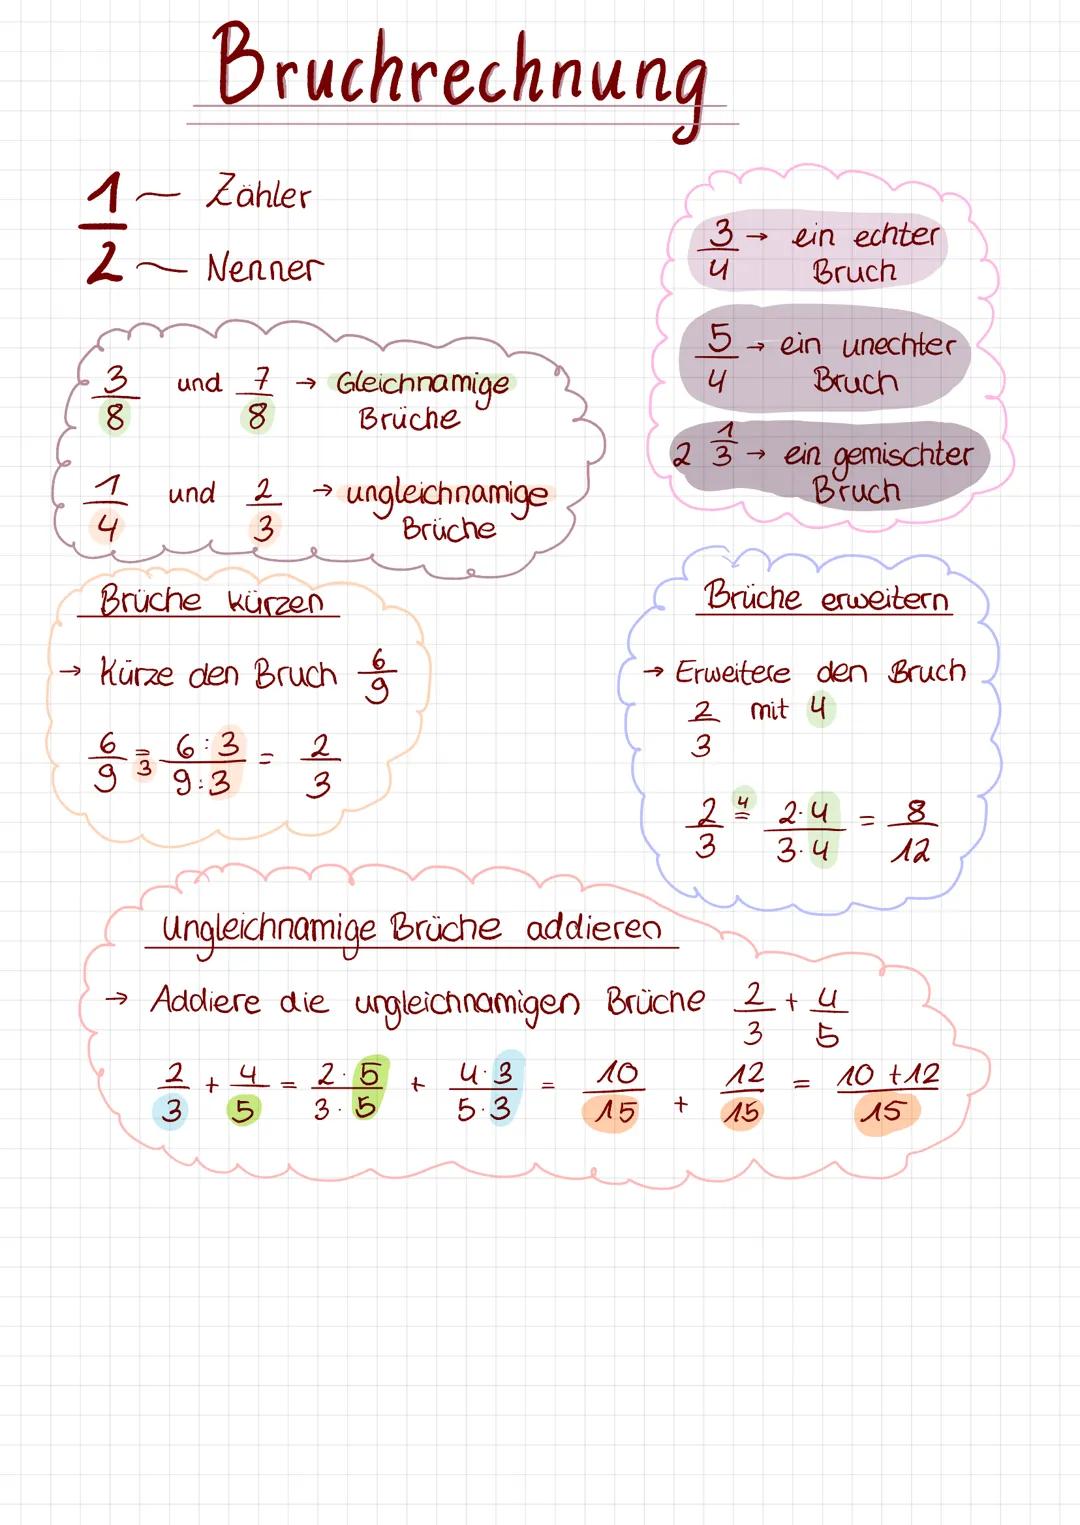 Bruchrechnung
1/2
Zähler
Nenner
3/4 → ein echter
Bruch
5/4 → ein unechter
Bruch
2 1/3 → ein gemischter
Bruch
3/8 und 7/8 → Gleichnamige
Brüche
1/4 und 2/3 → ungleichnamige
Brüche
Brüche kürzen
→ Kürze den Bruch 6/9
6/9 =3 6:3/9:3 = 2/3
Brüche erweitern
→ Erweitere den Bruch
2/3 mit 4
2/3 4= 2·4/3·4 = 8/12
Ungleichnamige Brüche addieren
→ Addiere die ungleichnamigen Brüche 2/3 + 4/5
2/3 + 4/5 = 2·5/3·5 + 4·3/5·3 = 10/15 + 12/15 = 10+12/15